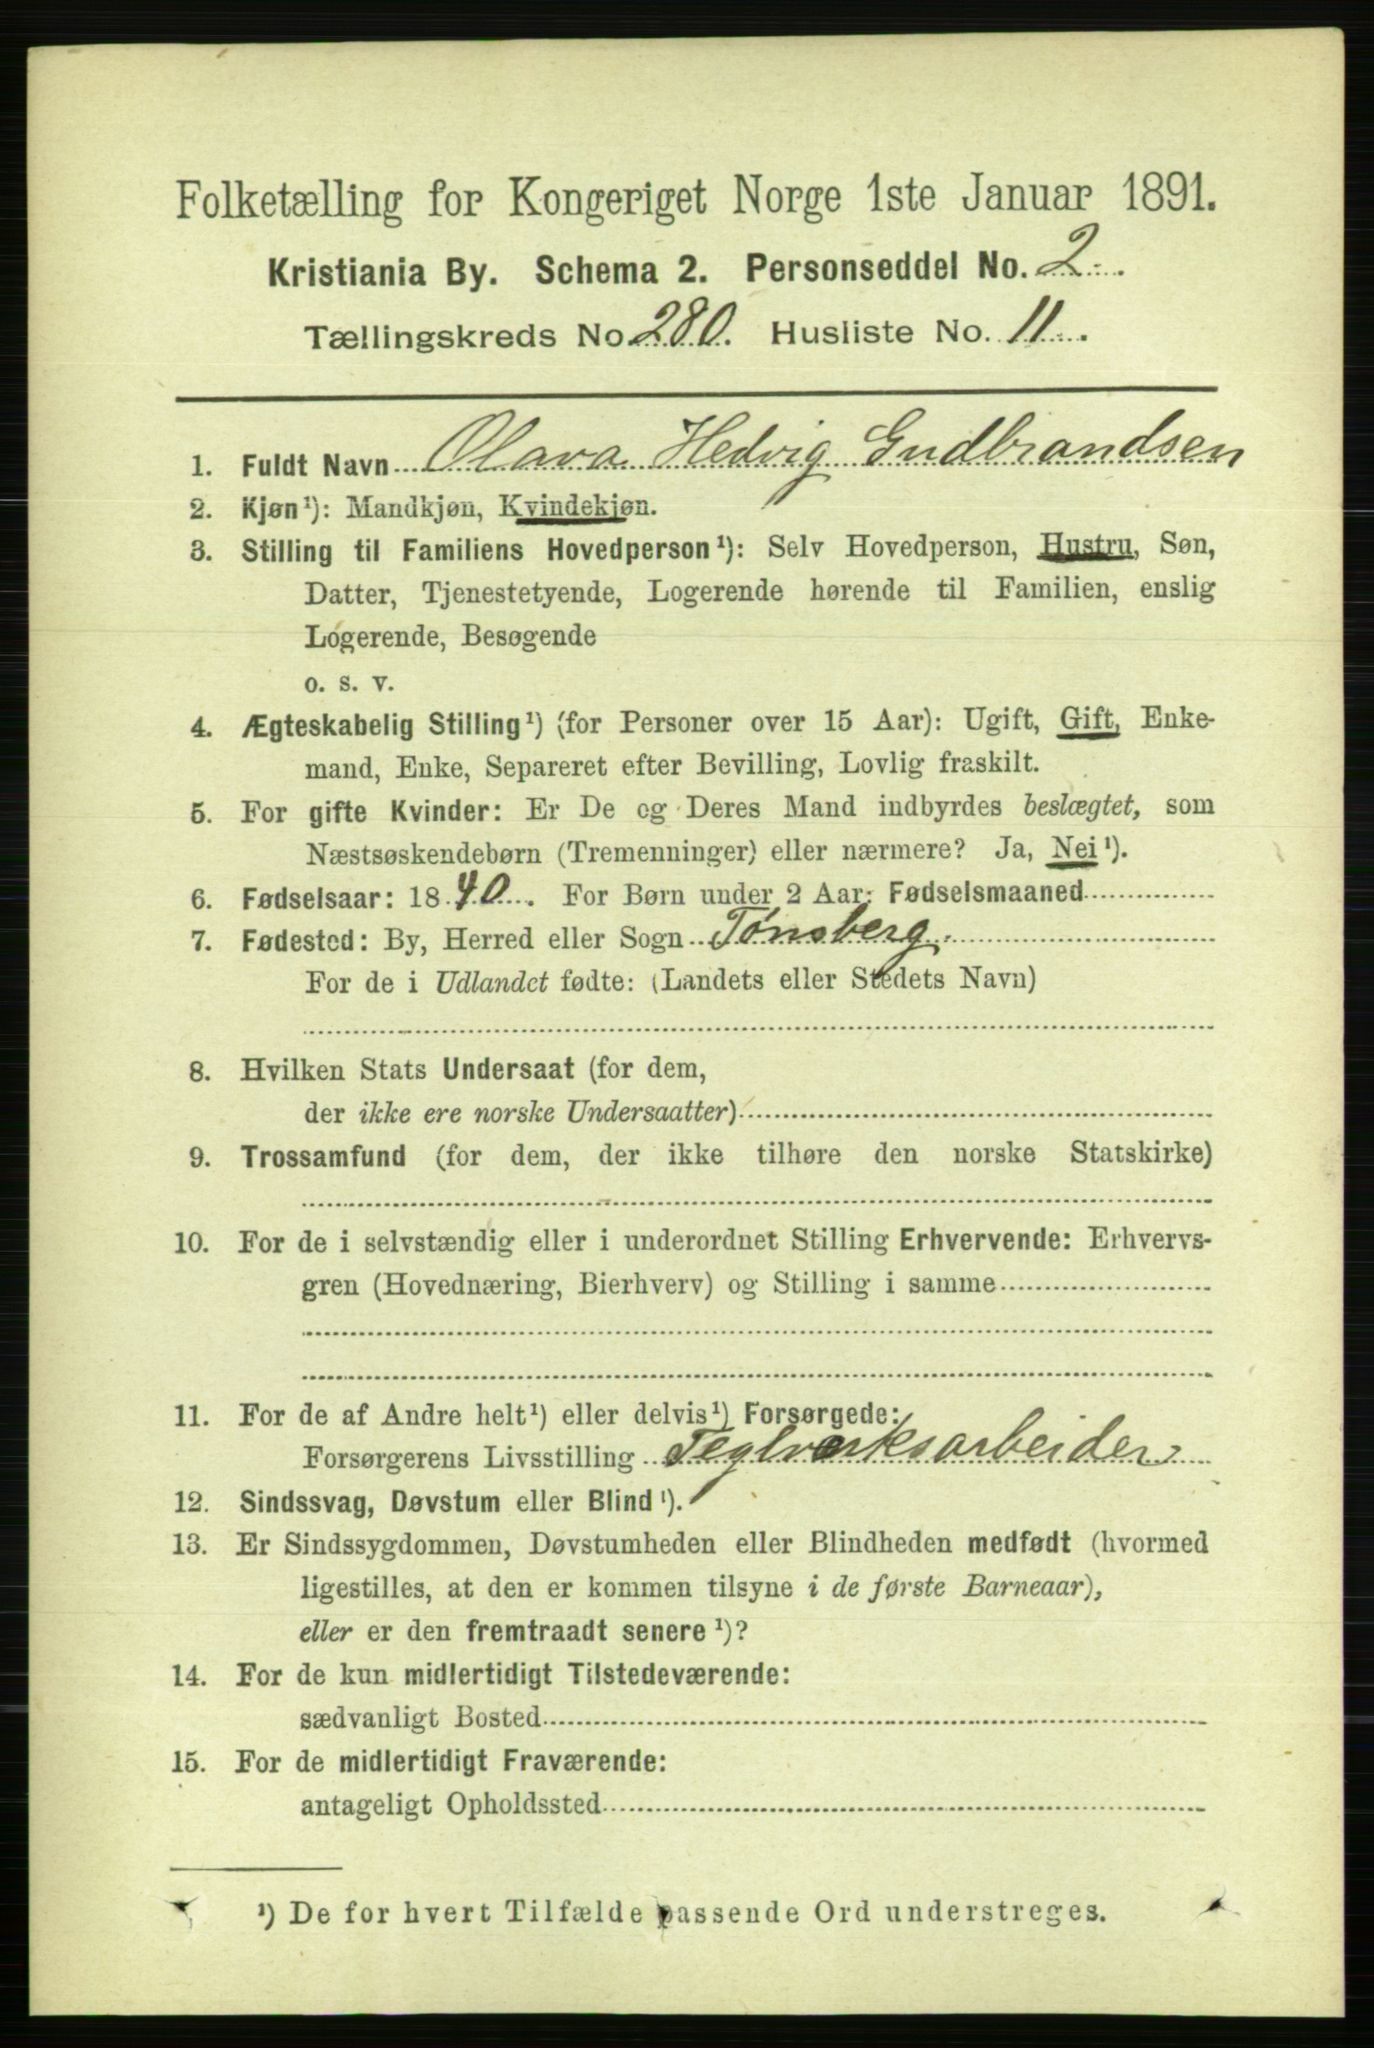 Folketælling for Kongeriget Norge 1ste Januar 1891.
Kristiania By. Schema 2. Personseddel No. 2
Tællingskreds No 280. Husliste No. 11
1. Fuldt Navn Olava Hedvig Gudbrandsen
2. Kjøn¹): Mandkjøn, Kvindekjøn.
3. Stilling til Familiens Hovedperson¹): Selv Hovedperson, Hustru, Søn,
Datter, Tjenestetyende, Logerende hørende til Familien, enslig
Logerende, Besøgende
o. s. v.
4. Ægteskabelig Stilling¹) (for Personer over 15 Aar): Ugift, Gift, Enke-
mand, Enke, Separeret efter Bevilling, Lovlig fraskilt.
5. For gifte Kvinder: Er De og Deres Mand indbyrdes beslægtet, som
Næstsøskendebørn (Tremenninger) eller nærmere? Ja, Nei¹).
6. Fødselsaar: 1840. For Børn under 2 Aar: Fødselsmaaned
7. Fødested: By, Herred eller Sogn Tønsberg.
For de i Udlandet fødte: (Landets eller Stedets Navn)
8. Hvilken Stats Undersaat (for dem,
der ikke ere norske Undersaatter)
9. Trossamfund (for dem, der ikke tilhøre den norske Statskirke)
10. For de i selvstændig eller i underordnet Stilling Erhvervende: Erhvervs-
gren (Hovednæring, Bierhverv) og Stilling i samme
11. For de af Andre helt¹) eller delvis¹) Forsørgede:
Forsørgerens Livsstilling Teglværksarbeider
12. Sindssvag, Døvstum eller Blind¹).
13. Er Sindssygdommen, Døvstumheden eller Blindheden medfødt (hvormed
ligestilles, at den er kommen tilsyne i de første Barneaar),
eller er den fremtraadt senere¹)?
14. For de kun midlertidigt Tilstedeværende:
sædvanligt Bosted
15. For de midlertidigt Fraværende:
antageligt Opholdssted
¹) De for hvert Tilfælde passende Ord understreges.